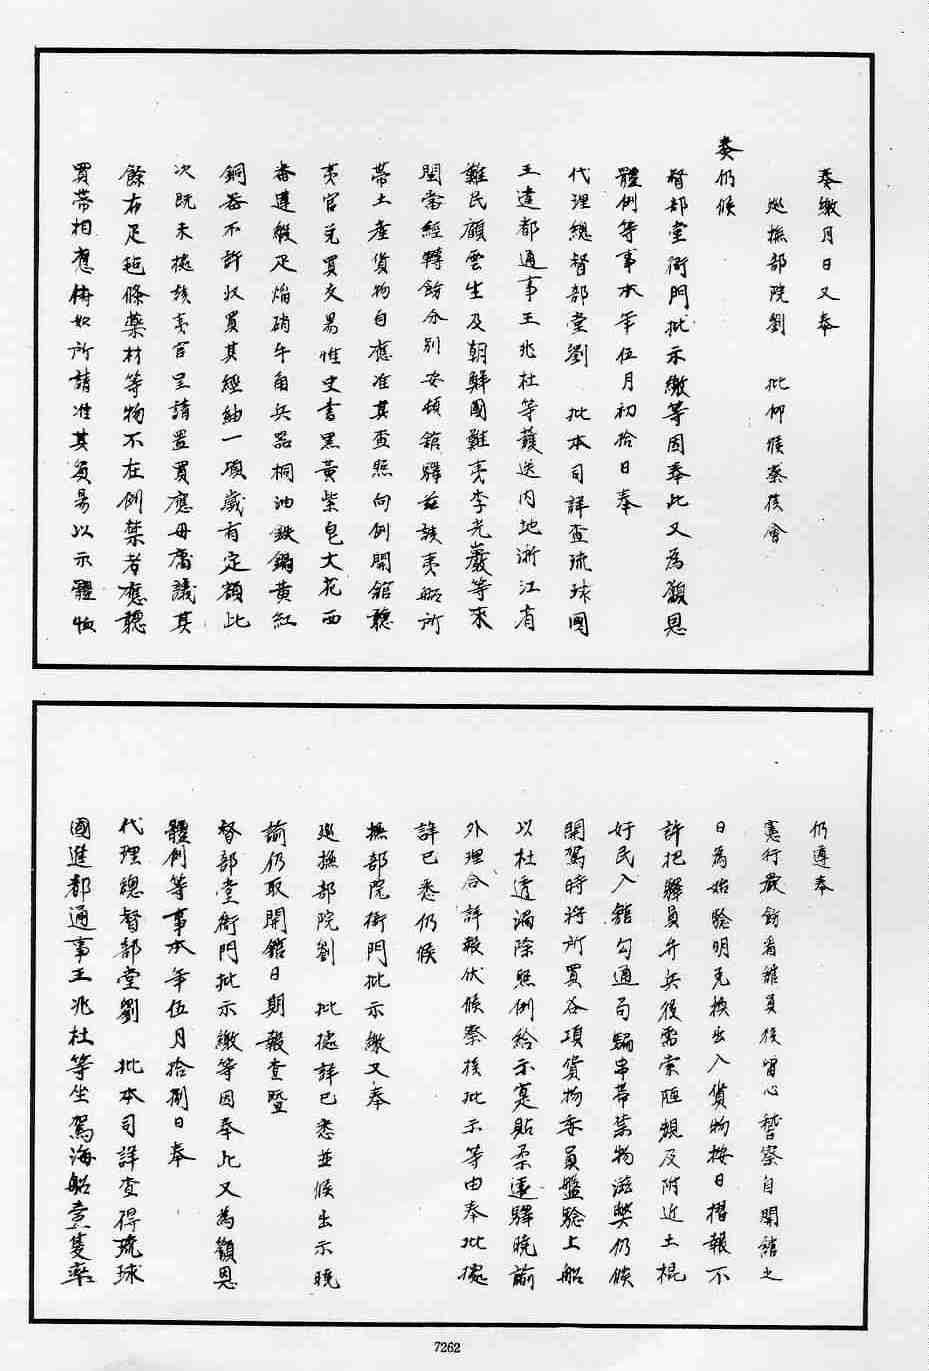 奏繳月日又奉
巡撫部院劉　批仰候察核會
奏仍候
督部堂衙門批示繳等因奉此又為籲恩
體例等事本年伍月初拾日奉
代理總督部堂劉　批本司詳查琉球國
王遣都通事王兆杜等護送內地浙江省
難民顧雲生及朝鮮國難夷李光巖等來
閩當經轉飭分別安頓館驛茲該夷船所
帶土產貨物自應准其查照向例開館聽
夷官兌買交易惟史書黑黃紫皂大花西
番蓮緞疋焰硝牛角兵器桐油鉄鍋黃紅
銅器不許收買其經紬一項歲有定額此
次既未據該夷官呈請置買應毋庸議其
餘布疋毡條藥材等物不在例禁者應聽
買帶相應俯如所請准其貿易以示體恤
仍遵奉
憲行嚴飭看館員役留心稽察自開館之
日為始驗明兌換出入貨物按日摺報不
許把驛員弁兵役需索陋規及附近土棍
奸民入館勾通局騙串帶禁物滋弊仍候
開駕時將所買各項貨物委員盤驗上船
以杜透漏除照例給示寔貼柔遠驛曉諭
外理合詳報伏候察核批示等由奉批據
詳已悉仍候
撫部院衙門批示繳又奉
巡撫部院劉　批據詳已悉並候出示曉
諭仍取開館日期報查暨
督部堂衙門批示繳等因奉此又為籲恩
體例等事本年伍月拾捌日奉
代理總督部堂劉　批本司詳查得琉球
國進都通事王兆杜等坐駕海船壹隻率
7262